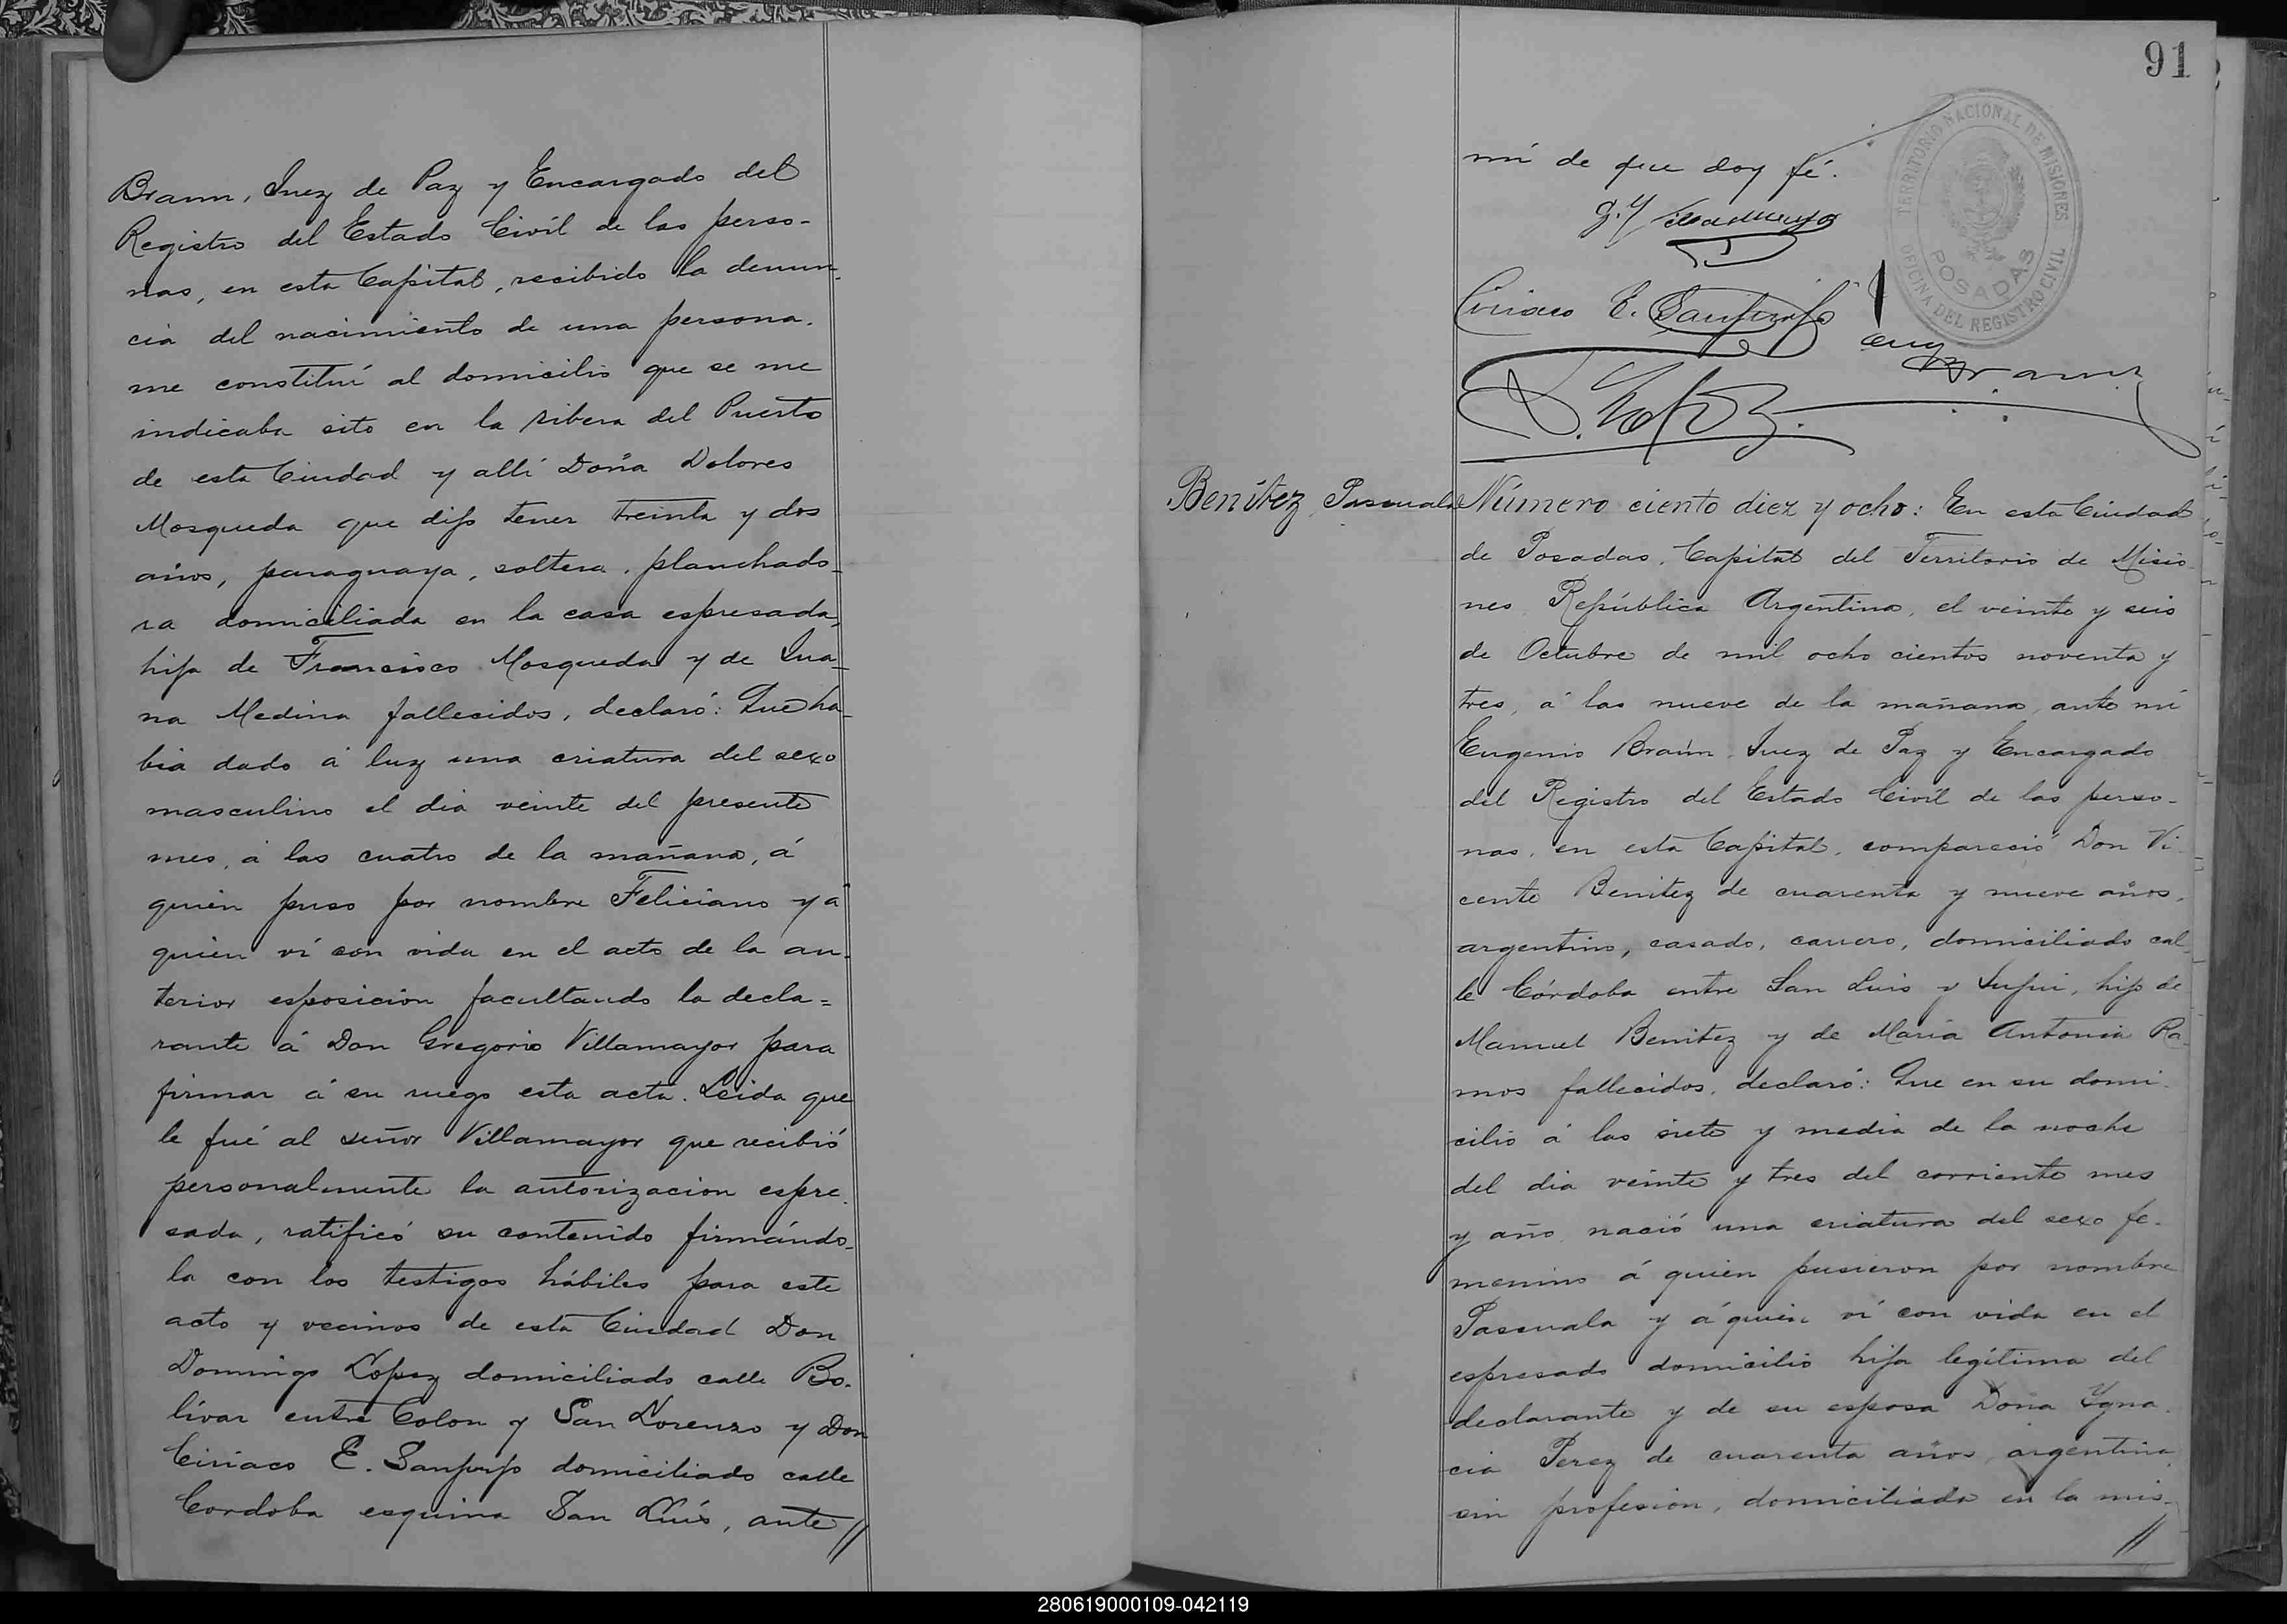 Braun, Juez de Paz y Encargado del
Registro del Estado Civil de las perso-
nas, en esta Capital, recibido la denun-
cia del nacimiento de una persona.
me constituí al domicilio que se me
indicaba sito en la ribera del Puerto
de esta Ciudad y allí Doña Dolores
Mosqueda que dijo tener treinta y dos
años, paraguaya, soltera, planchado-
ra domiciliada en la casa espresada,
hija de Francisco Mosqueda y de Jua-
na Medina fallecidos, declaró: Que ha-
bia dado á luz una criatura del sexo
masculino el dia veinte del presente
mes, á las cuatro de la mañana, á
quien puso por nombre Feliciano y a
quien ví con vida en el acto de la an-
terior esposicion facultando la decla=
rante á Don Gregorio Villamayor para
firmar á su ruego esta acta. Leida que
le fué al señor Villamayor que recibió
personalmente la autorizacion espre-
sada, ratificó su contenido firmándo-
la con los testigos hábiles para este
acto y vecinos de esta Ciudad Don
Domingo Lopez domiciliado calle Bo-
lívar entre Colon y San Lorenzo y Don
Ciriaco E. Sanjurjo domiciliado calle
Cordoba esquina San Luis, ante //
91
TERRITORIO NACIONAL DE MISIONES
POSADAS
OFICINA DEL REGISTRO CIVIL
mí de que doy fé.
G. Villamayor
Ciriaco E. Sanjurjo
Eug Braun
D. Lopez
Benítez Pascuala
Número ciento diez y ocho: En esta Ciudad
de Posadas, Capital del Territorio de Misio-
nes República Argentina, el veinte y seis
de Octubre de mil ocho cientos noventa y
tres, á las nueve de la mañana, ante mí
Eugenio Braún, Juez de Paz y Encargado
del Registro del Estado Civil de las perso-
nas, en esta Capital, compareció Don Vi-
cente Benitez de cuarenta y nueve años,
argentino, casado, carrero, domiciliado cal-
le Córdoba entre San Luis y Jujui, hijo de
Manuel Benitez y de María Antonia Ra-
mos fallecidos, declaró: Que en su domi-
cilio á las siete y media de la noche
del dia veinte y tres del corriente mes
y año nació una criatura del sexo fe-
menino á quien pusieron por nombre
Pascuala y á quien ví con vida en el
espresado domicilio hija legítima del
declarante y de su esposa Doña Ygna-
cia Perez de cuarenta años, argentina,
sin profesion, domiciliada en la mis-
//
280619000109-042119